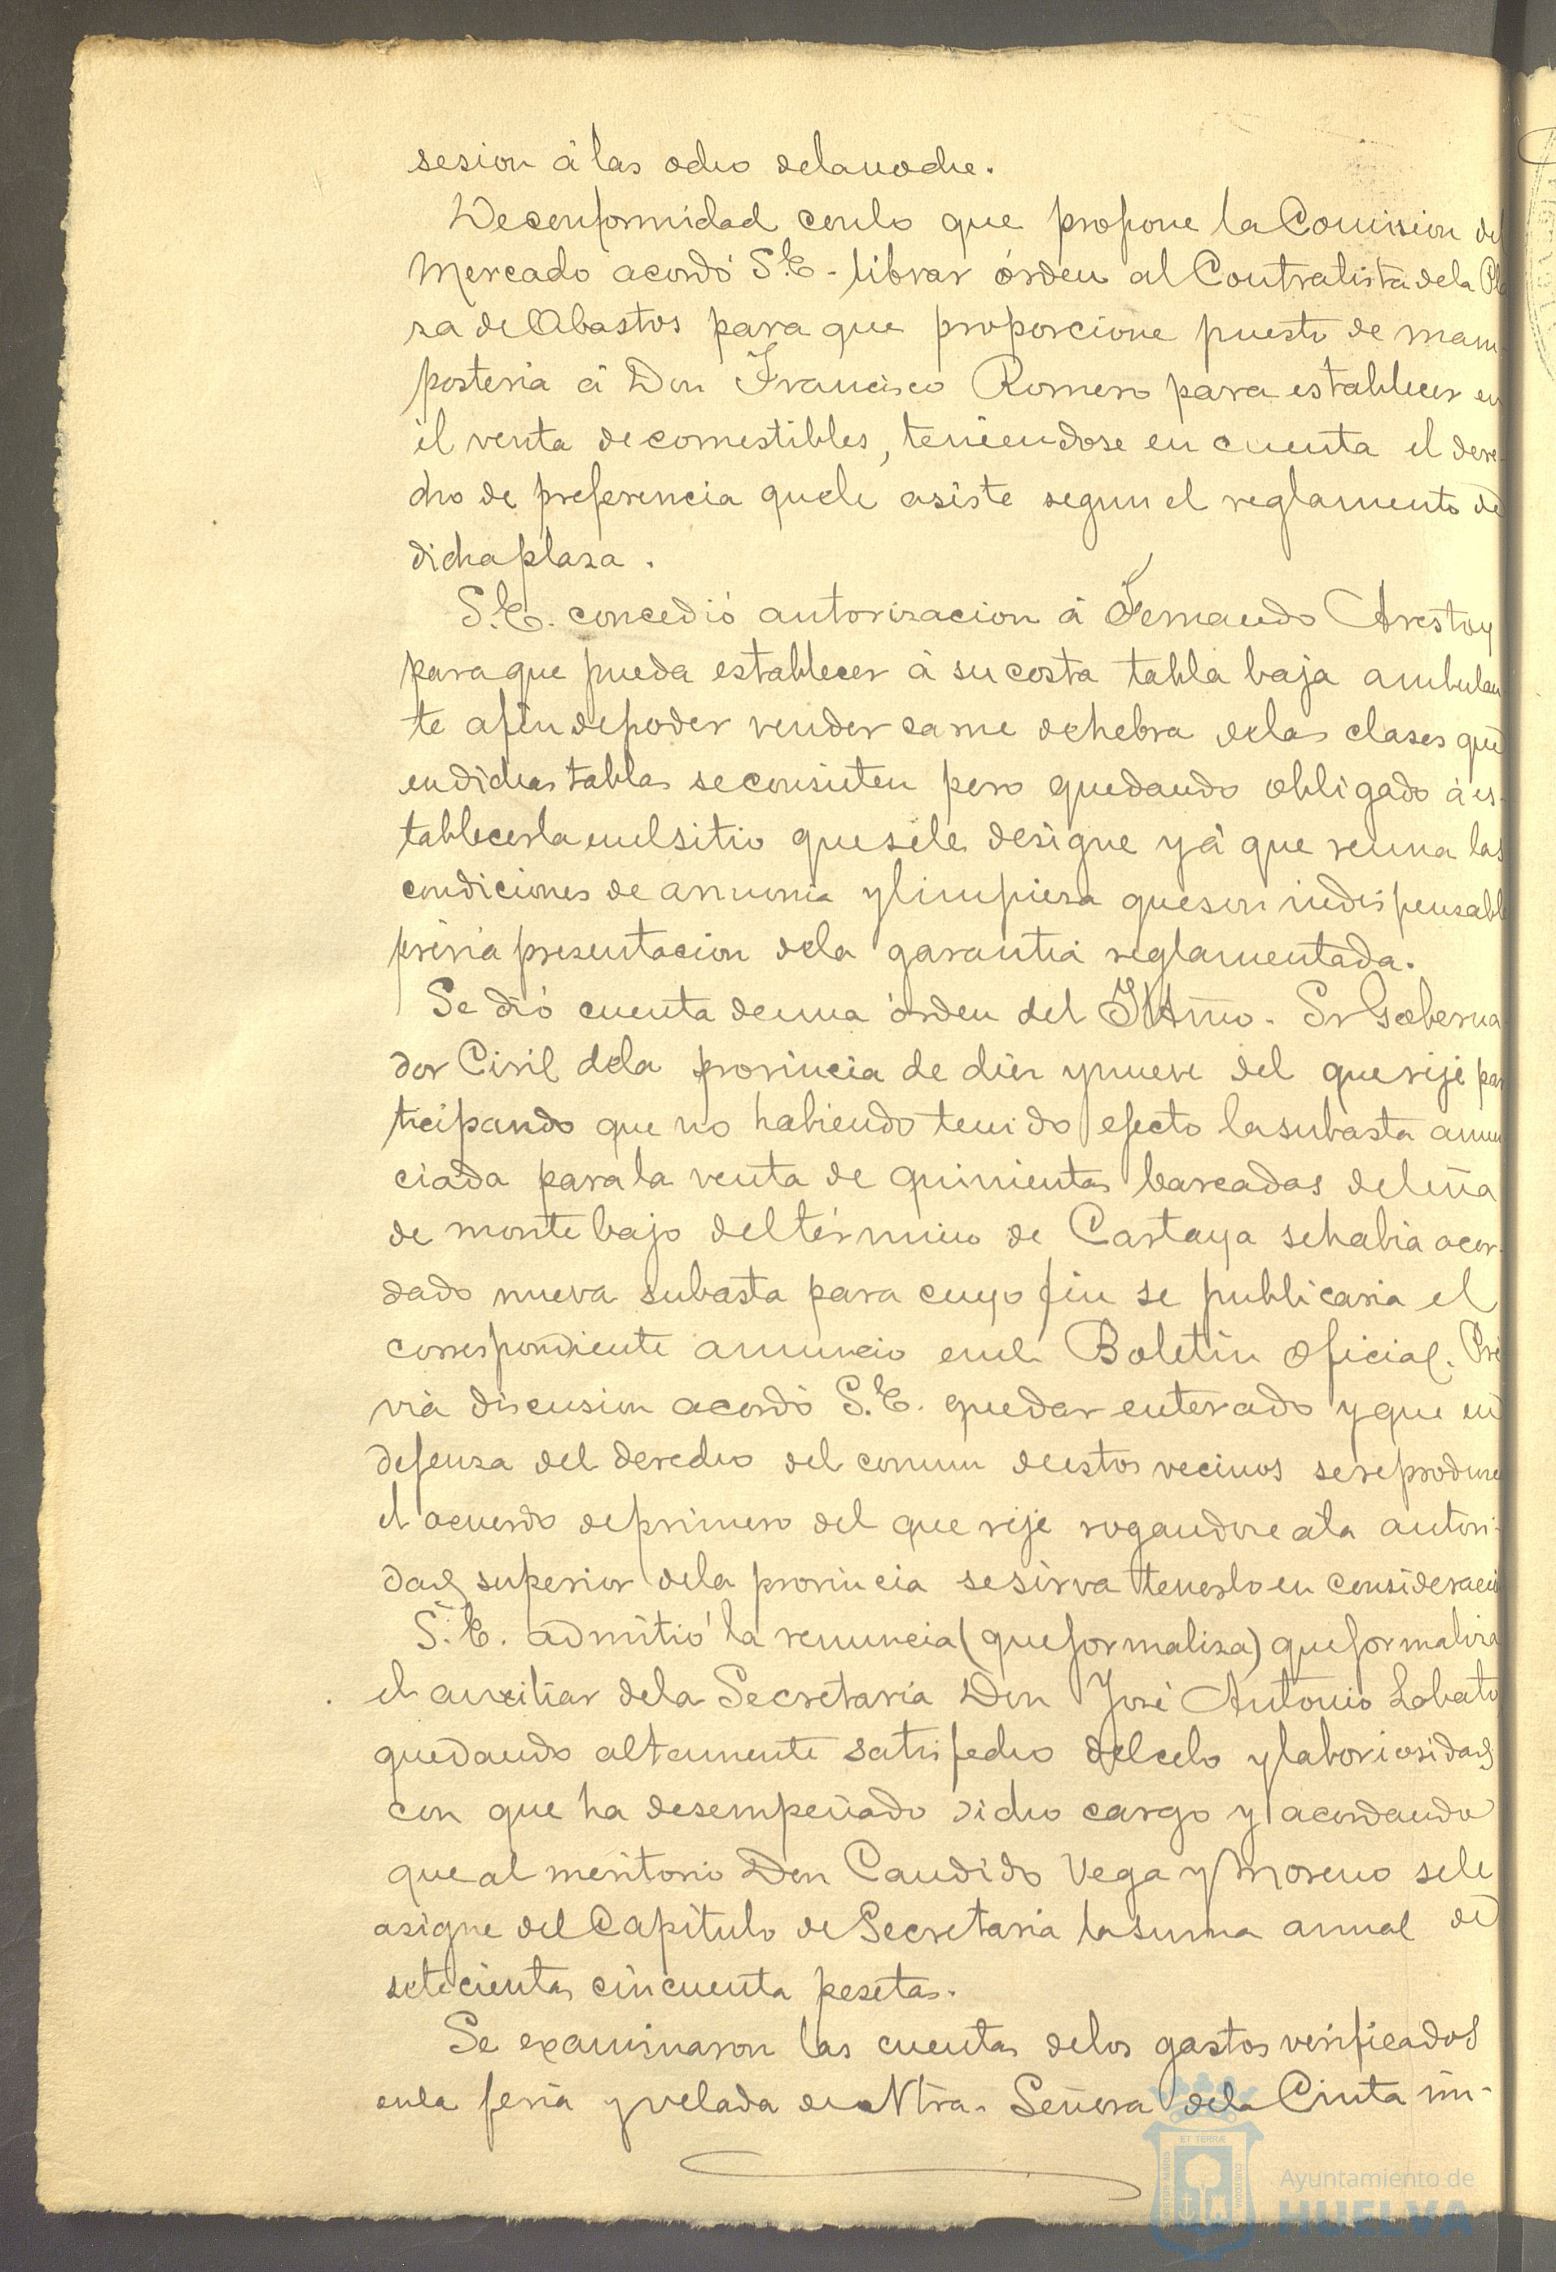 sesion á las ocho de la noche.
De conformidad con lo que propone la Comision del
Mercado acordó S.E. librar órden al Contratista de la Pla
za de Abastos para que proporcione puesto de mam-
posteria á Don Francisco Romero para establecer en
él venta de comestibles, teniendose en cuenta el dere-
cho de preferencia que le asiste segun el reglamento de
dicha plaza.
S.E. concedió autorizacion á Fernando Arestoy
para que pueda establecer á su costa tabla baja ambulan
te a fin de poder vender carne de hebra de las clases que
en dichas tablas se consinten pero quedando obligado á es-
tablecerla en el sitio que se le designe y á que reuna las
condiciones de armonia y limpieza que son indispensabl
prévia presentacion de la garantia reglamentada.
Se dió cuenta de una órden del Iltmo. Sr Goberna
dor Civil de la provincia de diez y nueve del que rije par
ticipando que no habiendo tenido efecto la subasta anun
ciada para la venta de quinientas barcadas de leña
de monte bajo del término de Cartaya se habia acor-
dado nueva subasta para cuyo fin se publicaria el
correspondiente anuncio en el Boletin Oficial. Pré
via discusion acordó S.E. quedar enterado y que en
defensa del derecho del comun de estos vecinos se reproduzca
el acuerdo de primero del que rije rogandose á la autori-
dad superior de la provincia se sirva tenerlo en consideracion
S.E. admitió la renuncia (que formaliza) que formaliza
el auxiliar de la Secretaría Don José Antonio Lobato
quedando altamente satisfecho del celo y laboriosidad
con que ha desempeñado dicho cargo y acordando
que al meritorio Don Candido Vega y Moreno se le
asigne del Capítulo de Secretaria la suma anual de
setecientas cincuenta pesetas.
Se examinaron las cuentas de los gastos verificados
en la feria y velada de Ntra. Señora de la Cinta im-
Ayuntamiento de
HUELVA